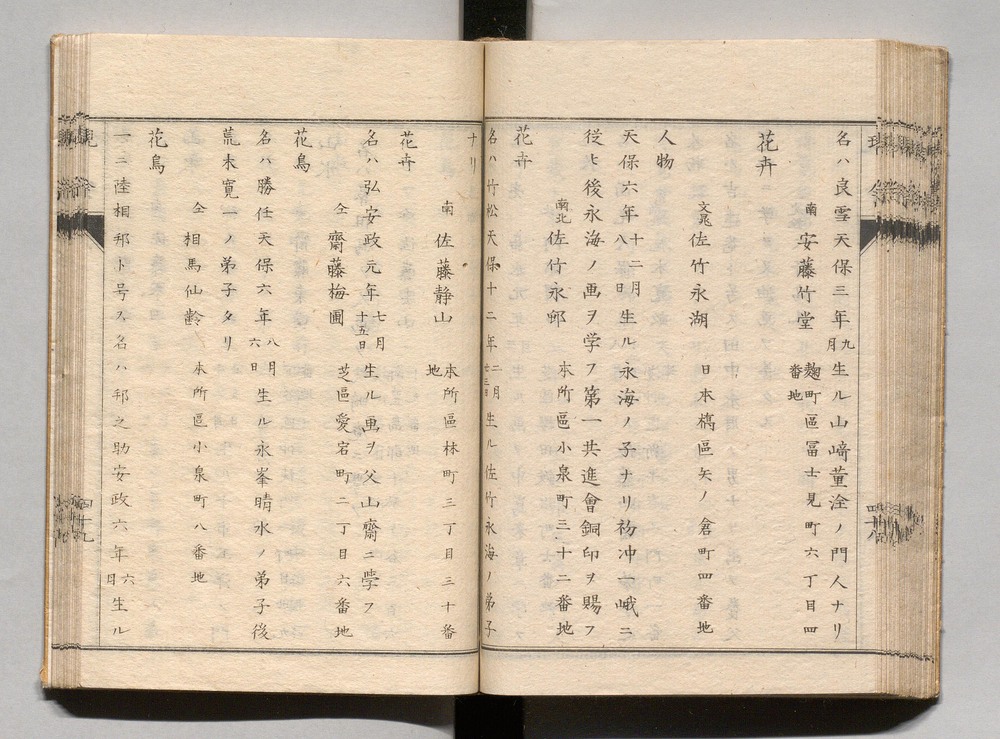 名ハ良雪天保三年九月生ル山﨑董洤ノ門人ナリ
花卉
南 安藤竹堂 麹町區冨士見町六丁目四番地
文晁 佐竹永湖 日本橋區矢ノ倉町四番地
人物
天保六年十二月八日生ル永海ノ子ナリ初冲一峨ニ
従ヒ後永海ノ画ヲ学フ第一共進會銅印ヲ賜フ
南北 佐竹永邨 本所區小泉町三十二番地
花卉
名ハ竹松天保十二年二月廿三日生ル佐竹永海ノ弟子
ナリ
南 佐藤静山 本所區林町三丁目三十番地
花卉
名ハ弘安政元年七月十五日生ル画ヲ父山齋ニ學フ
仝 齋藤梅圃 芝區愛宕町二丁目六番地
花鳥
名ハ勝任天保六年八月六日生ル永峯晴水ノ弟子後
荒木寛一ノ弟子タリ
仝 相馬仙齢 本所區小泉町八番地
花鳥
一ニ陸相邨ト号ス名ハ邨之助安政六年六月生ル
四十八
四十九